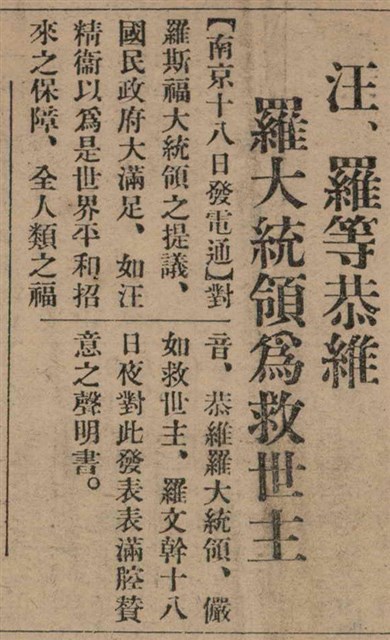 汪、羅等恭維
羅大統領爲救世主
【南京十八日發電通】對
羅斯福大統領之提議、
國民政府大滿足、如汪
精衞以爲是世界平和招
來之保障、全人類之福
音、恭維羅大統領、儼
如救世主、羅文幹十八
日夜對此發表表滿腔賛
意之聲明書。